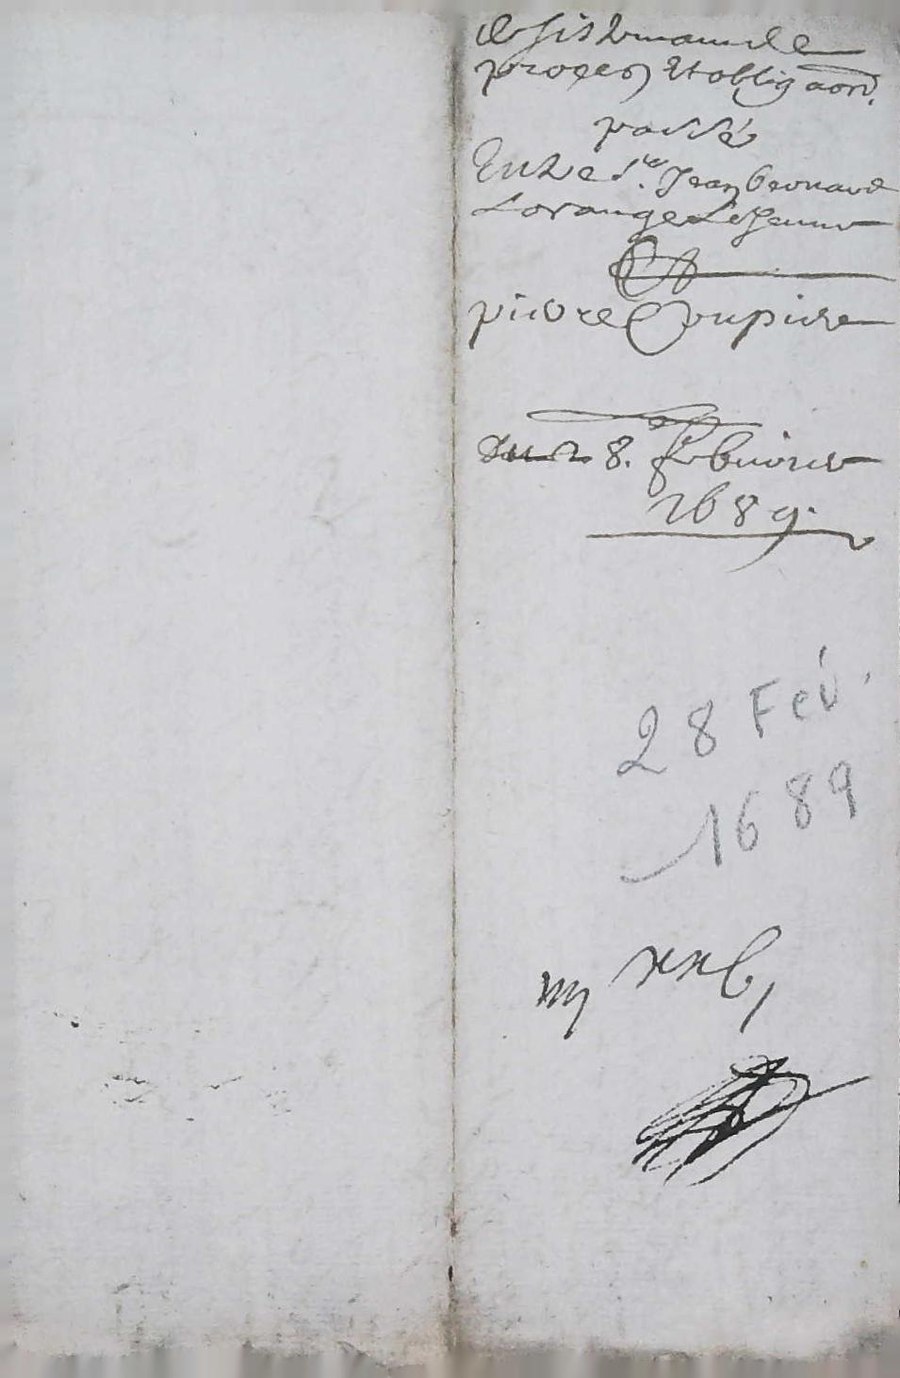 desistemant de
proçes Et obligaon.
passé
Entre Sr. Jean bernard
Lorange Le Jeune
Et
pierre Coupire
du 28. febvrier
1689.
28 Fév.
1689